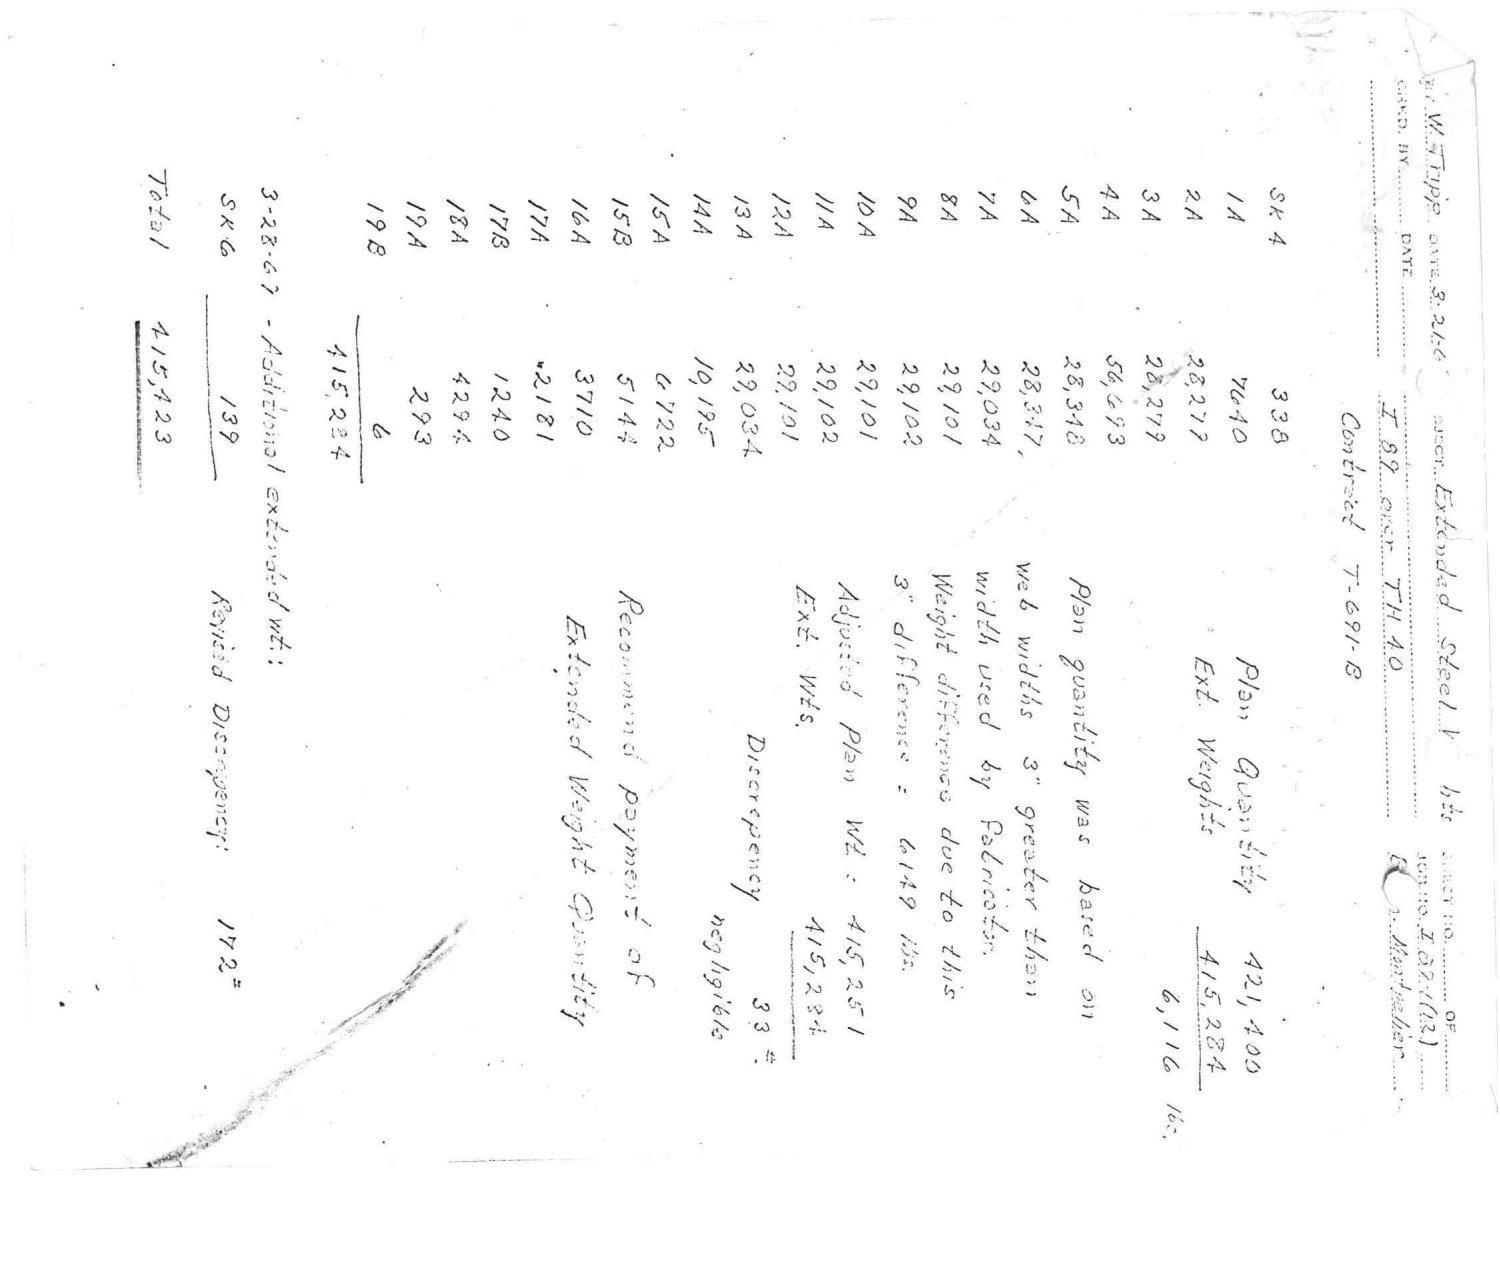 BY W.S Tripp DATE 3-21-6 SUBJECT Extended Steel W hts SHEET NO. OF
CHKD. BY DATE I 89 over TH 40 JOB NO. I 89-1(12)
Contract T-691-B Montpelier
SK 4 338
1A 7640 Plan Quantity 421,400
2A 28,279 Ext. Weights 415,284
3A 28,279 6,116 lbs.
4A 56,693
5A 28,348 Plan quantity was based on
6A 28,347 web widths 3" greater than
7A 29,034 width used by fabricator.
8A 29,101 Weight difference due to this
9A 29,102 3" difference = 6149 lbs.
10A 29,101 Adjusted Plan Wt = 415,251
11A 29,102 Ext. Wts. 415,284
12A 29,101
13A 29,034 Discrepency 33 #.
14A 10,195 negligible
15A 6722
15B 5144 Recommend payment of
16A 3710 Extended Weight Quantity
17A 2181
17B 1240
18A 4294
19A 293
19B 6
415,284
3-28-67 - Additional extended wt:
SK6 139 Revised Discrepency: 172#
Total 415,423